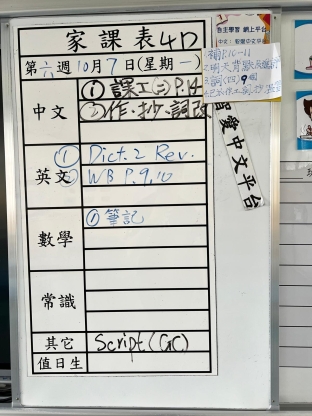 家課表4D
第六週10月7日(星期一)
中文
①課工(二)P.14
②作、抄、詞改
英文
① Dict. 2 Rev.
② WB P.9,10
數學
① 筆記
常識
其它
Script (GC)
值日生
自主學習 網上平台
中文：智愛中文平台
智愛中文平台